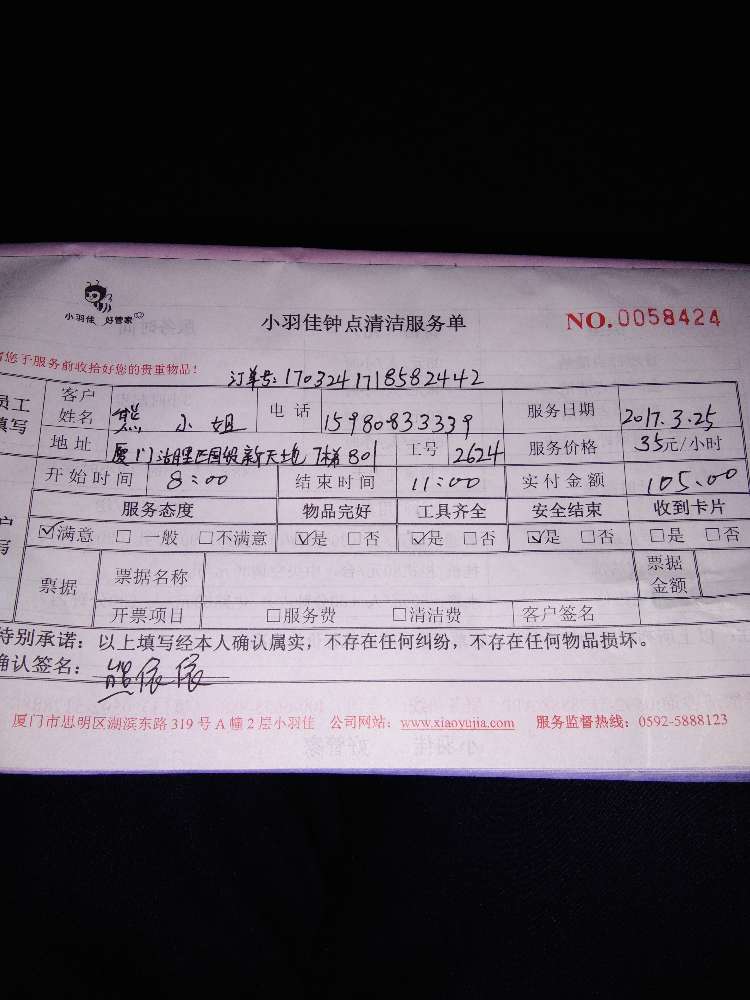 小羽佳 好管家
小羽佳钟点清洁服务单
NO.0058424
您于服务前收拾好您的贵重物品！
订单号:1703241718582442
员工填写
客户姓名 熊小姐 电话 15980833339 服务日期 2017.3.25
地址 厦门湖里区国级新天地7梯801 工号 2624 服务价格 35元/小时
开始时间 8:00 结束时间 11:00 实付金额 105.00
服务态度 物品完好 工具齐全 安全结束 收到卡片
☑满意 □一般 □不满意 ☑是 □否 ☑是 □否 ☑是 □否 □是 □否
票据 票据名称 票据金额
开票项目 □服务费 □清洁费 客户签名
特别承诺：以上填写经本人确认属实，不存在任何纠纷，不存在任何物品损坏。
确认签名：熊依依
厦门市思明区湖滨东路319号A幢2层小羽佳 公司网站：www.xiaoyujia.com 服务监督热线：0592-5888123